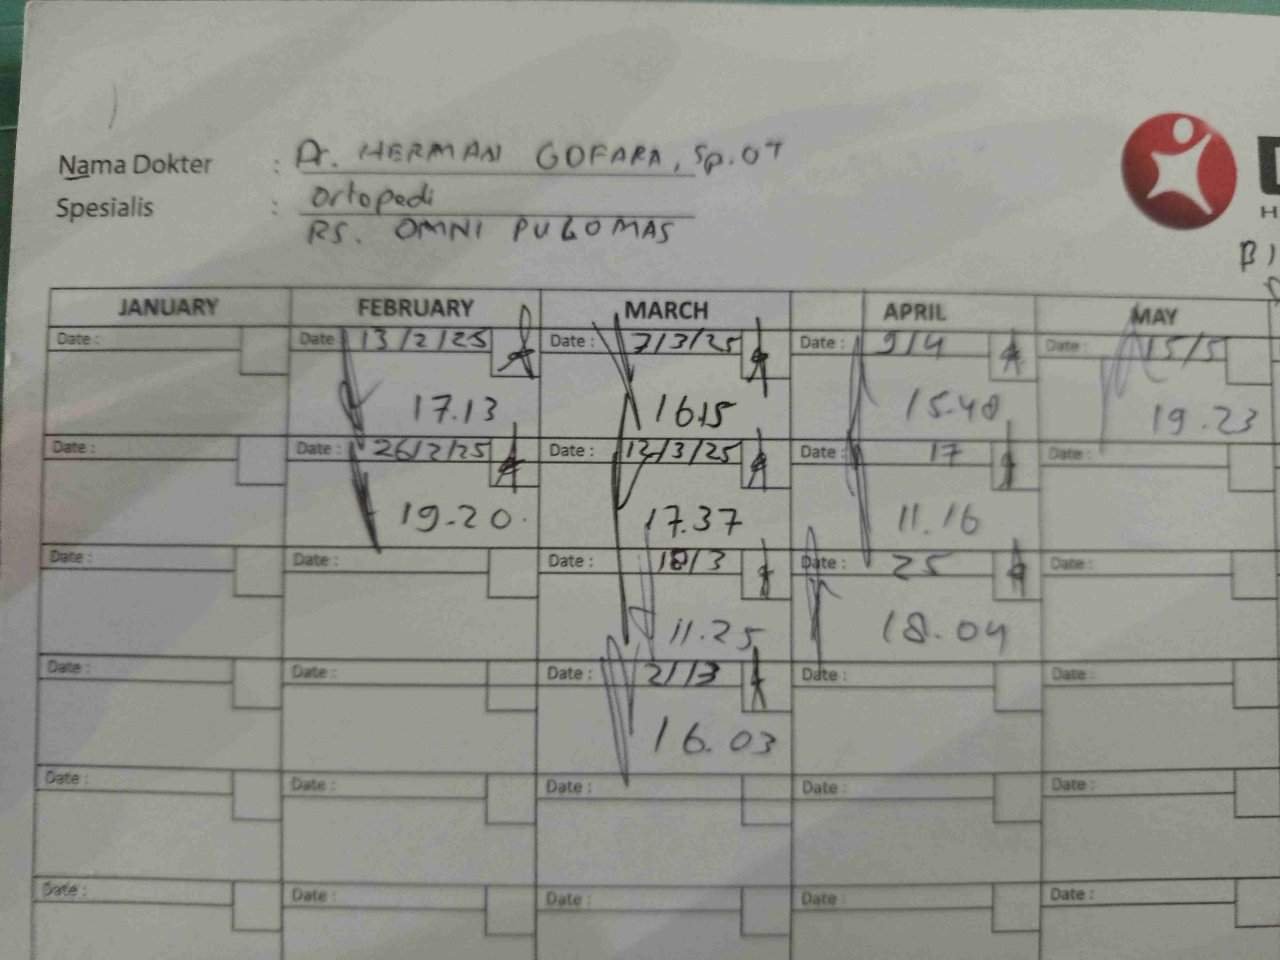 Nama Dokter : Dr. HERMAN GOFARA, Sp.OT
Spesialis : Ortopedi
RS. OMNI PULOMAS
JANUARY FEBRUARY MARCH APRIL MAY
Date : Date : 13/2/25 Date : 7/3/25 Date : 9/4 Date : 15/5
17.13 16.15 15.48 19.23
Date : Date : 26/2/25 Date : 12/3/25 Date : 17 Date :
19.20 17.37 11.16
Date : Date : Date : 18/3 Date : 25 Date :
11.25 18.04
Date : Date : Date : 21/3 Date : Date :
16.03
Date : Date : Date : Date : Date :
Date : Date : Date : Date : Date :